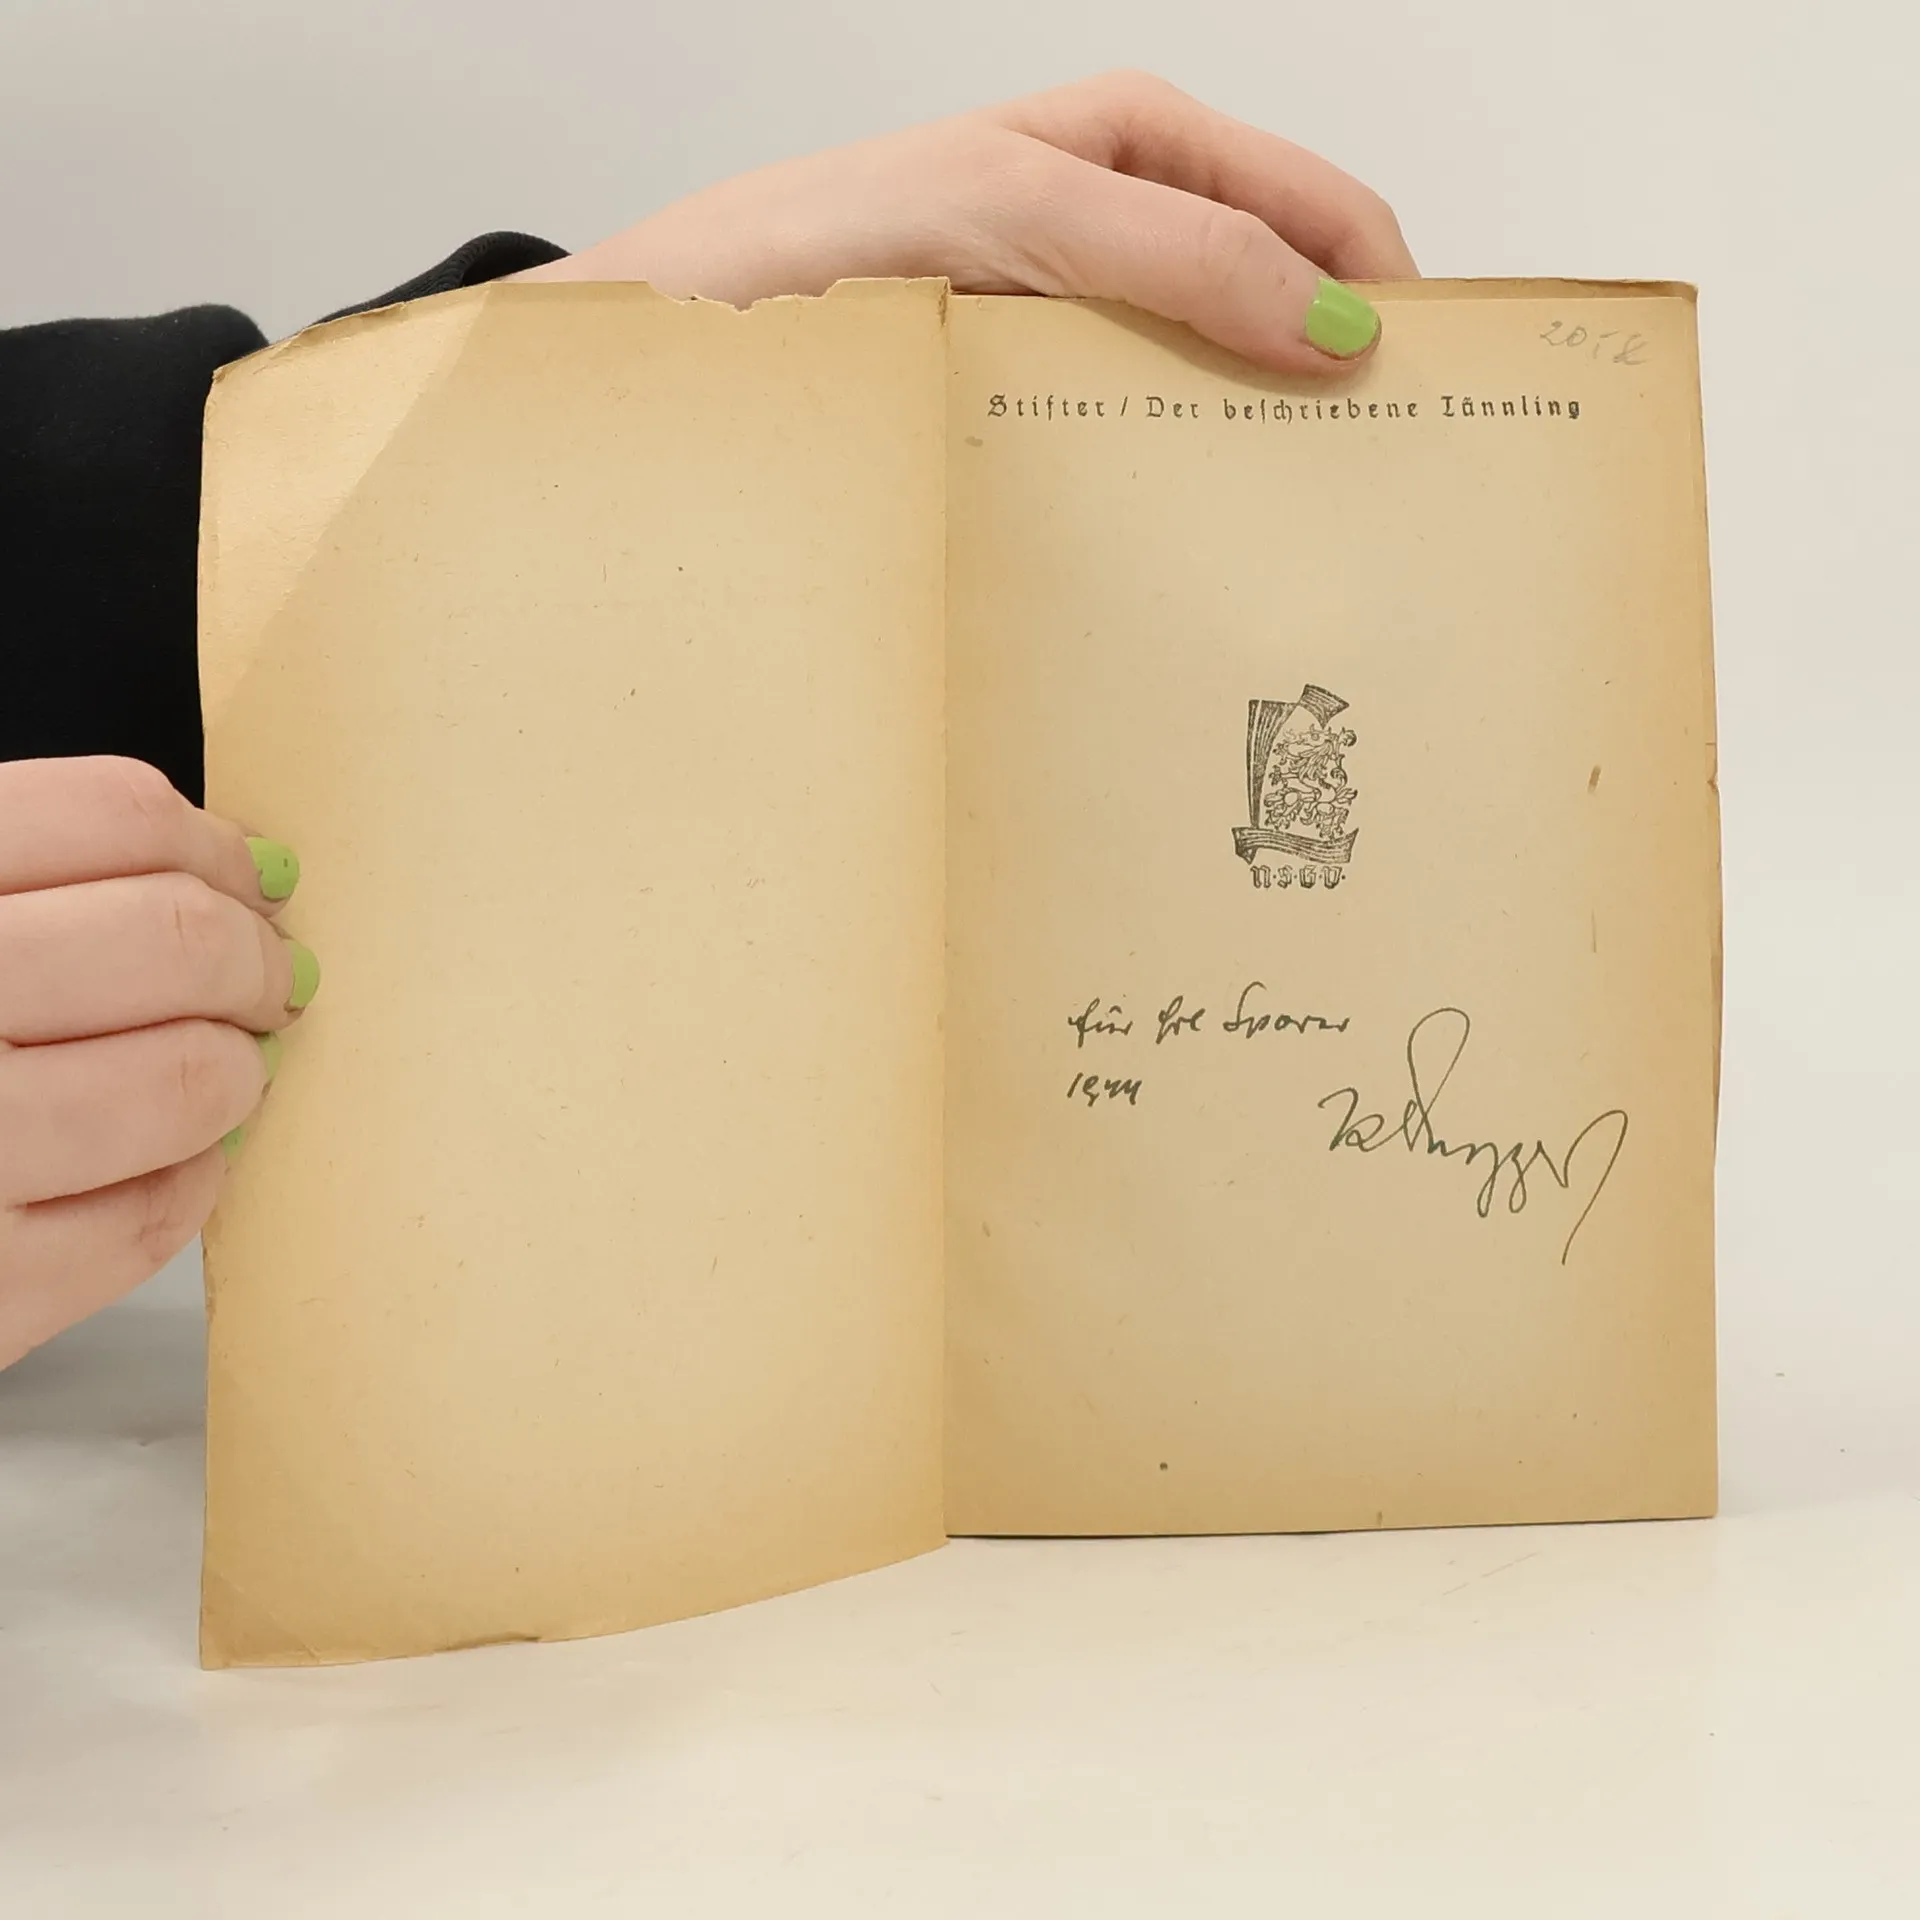 20,- K
Stifter / Der beschriebene Tännling
N·S·G·V·
für Frl Sporer
1944